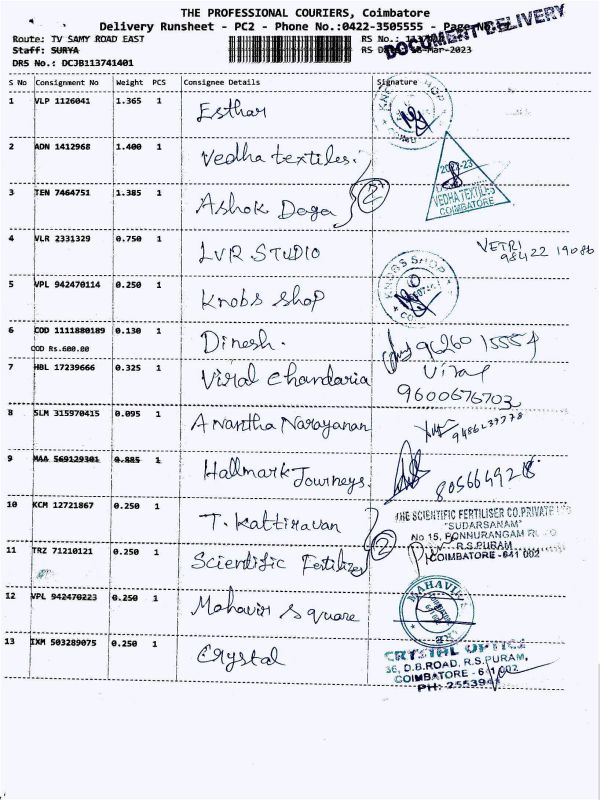 THE PROFESSIONAL COURIERS, Coimbatore
Delivery Runsheet - PC2 - Phone No.:0422-3505555 - Page No.
DOCUMENT DELIVERY
Route: TV SAMY ROAD EAST
RS No.:
Staff: SURYA
RS -Mar-2023
DRS No.: DCJB113741401
S No Consignment No Weight PCS Consignee Details Signature
1 VLP 1126041 1.365 1 Esthar
KNOBS SHOP
2 ADN 1412968 1.400 1 Vedha textiles.
2023-23
VEDHA TEXTILES
COIMBATORE
3 TEN 7464751 1.385 1 Ashok Daga
2
4 VLR 2331329 0.750 1 LVR STUDIO
VETRI
98422 19086
5 VPL 942470114 0.250 1 Knobs Shop
KNOBS SHOP
6 COD 1111880189 0.130 1 Dinesh. 96260 15554
COD Rs.600.00
7 HBL 17239666 0.325 1 Viral Chandaria Viral
9600676703
8 SLM 315970415 0.095 1 Anantha Narayanan
9 MAA 569129301 0.885 1 Hallmark Journeys.
10 KCM 12721867 0.250 1 T. Kattiravan
THE SCIENTIFIC FERTILISER CO.PRIVATE LTD
"SUDARSANAM"
No 15, PONNURANGAM
R.S.PURAM
COIMBATORE - 641 002
11 TRZ 71210121 0.250 1 Scientific Fertilizer
2
12 VPL 942470223 0.250 1 Mahavir Square
MAHAVIR
13 IXM 503289075 0.250 1 Crystal
CRYSTAL OPTICS
36, D.B.ROAD, R.S.PURAM,
COIMBATORE - 641 002